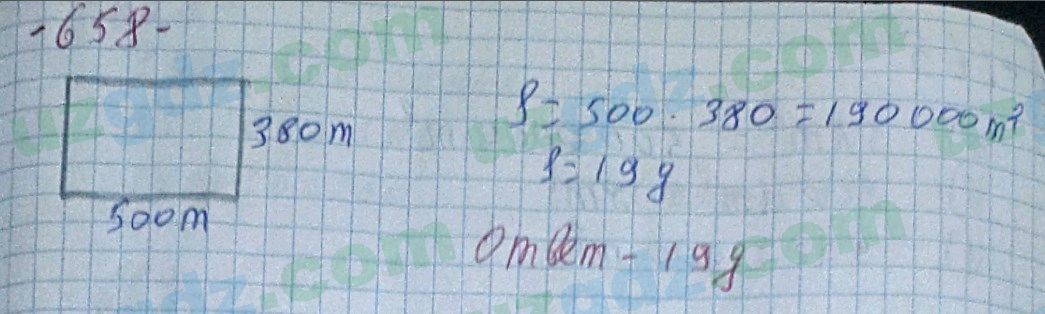 -658-
380m
500m
S=500·380=190000m²
S=19g
Ответ - 19g
uzgdz.com
uzgdz.com
uzgdz.com
uzgdz.com
uzgdz.com